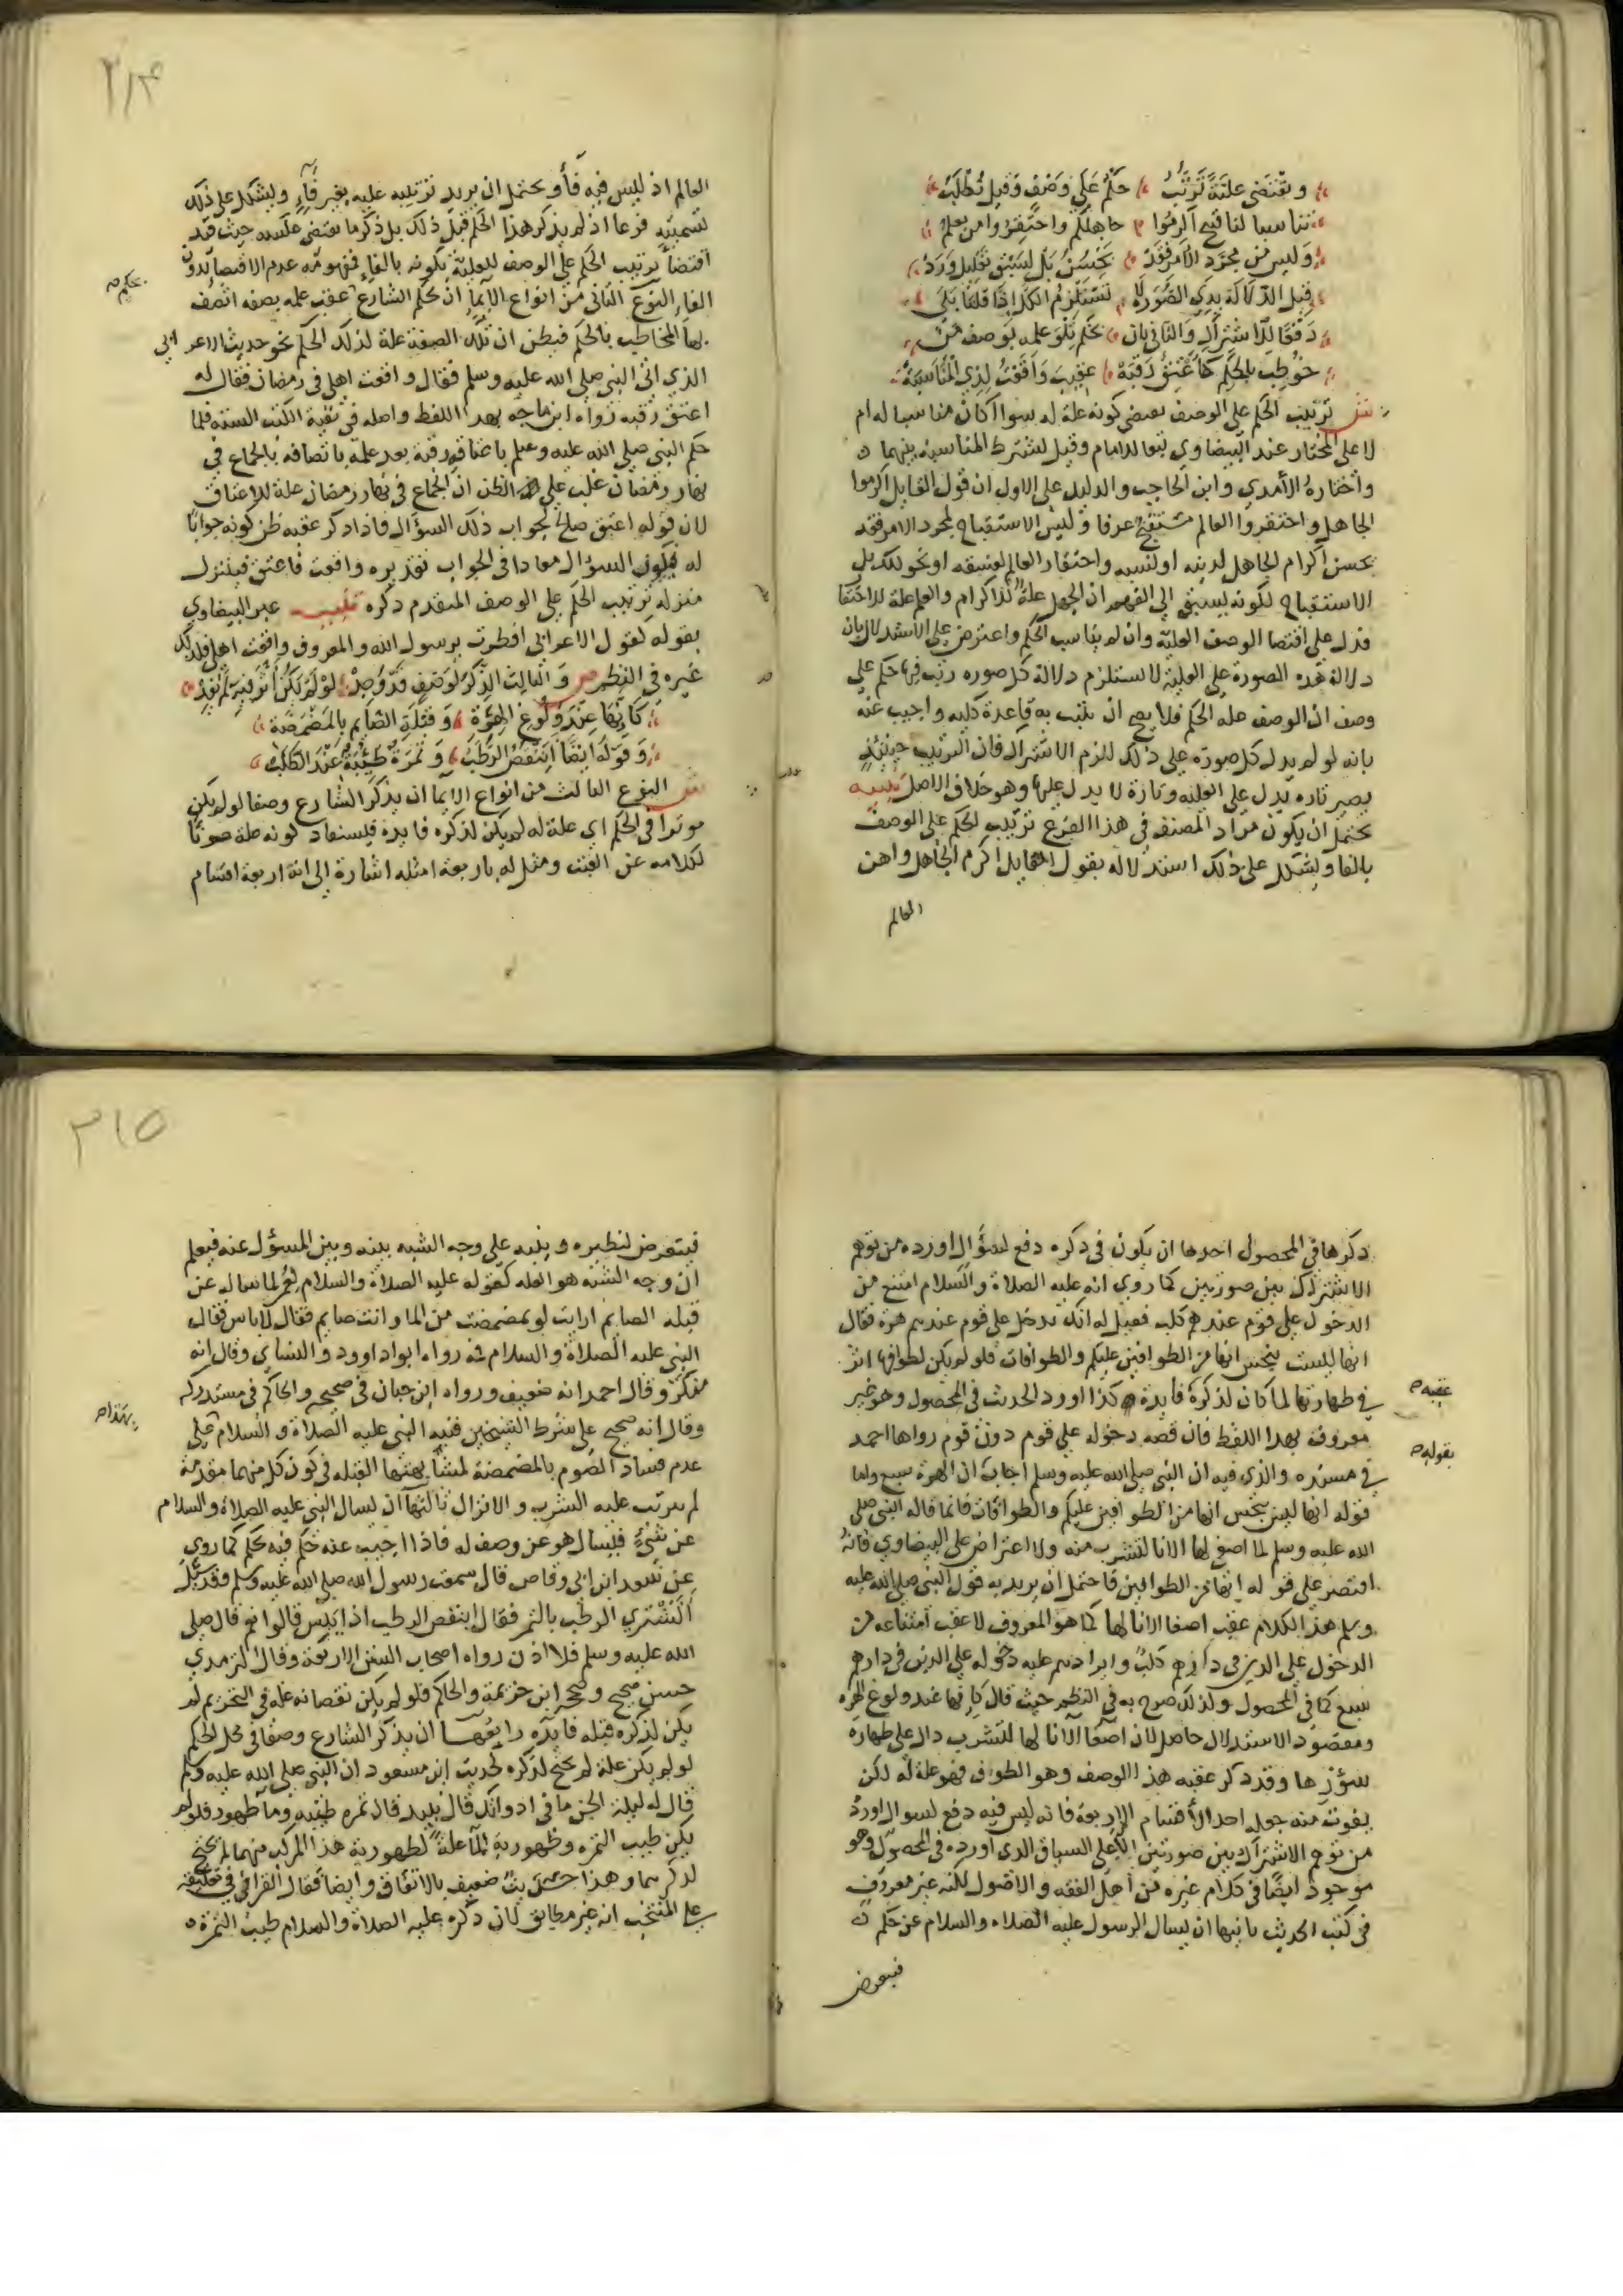 ويقتضي علية ترتب حكم على وصف وقيل تطلب
تناسبا لنا قبح اكرموا جاهلكم واحتقروا من يعلم
وليس من مجرد الامر فقد يحسن بل لسبق تعليل ورد
قيل الدلالة بذي الصورة لا تستلزم الكل اذا قلنا بلى
دفعا للاشتراك والثاني بان يحكم تلو علمه بوصف من
خوطب بالحكم كاعتق رقبة عقيب واقعت لذي المناسبة
ش ترتيب الحكم على الوصف يقتضي كونه علة له سواا كان مناسبا له ام
لا على المختار عند البيضاوي تبعا للامام وقيل تشترط المناسبة بينهما
واختاره الأمدي وابن الحاجب والدليل على الاول ان قول القايل اكرموا
الجاهل واحتقروا العالم مستقبح عرفا وليس الاستقباح لمجرد الامر فقد
يحسن اكرام الجاهل لدينه او لنسبه واحتقار العالم لفسقه او نحو ذلك بل
الاستقباح لكونه يسبق الى الفهم ان الجهل علة للاكرام والعلم علة للاحتقا
فدل على اقتضا الوصف العلية وان لم يناسب الحكم واعترض على الاستدلال بان
دلالة هذه الصورة على العلية لا تستلزم دلالة كل صوره رتب فيها حكم على
وصف ان الوصف علة الحكم فلا يصح ان يثبت به قاعدة كلية واجيب عنه
بانه لو لم يدل كل صورة على ذلك للزم الاشتراك فان الترتيب حينئذ
يصير تاره يدل على العليه وتارة لا يدل عليها وهو خلاف الاصل تنبيه
يحتمل ان يكون مراد المصنف في هذا الفرع ترتيب الحكم على الوصف
بالفا ويشكل على ذلك استدلاله بقول القايل اكرم الجاهل واهن
العالم
٢١٤
العالم اذ ليس فيه فأ ويحتمل ان يريد ترتيبه عليه بغير فاء ويشكل على ذلك
تسميته فرعا اذ لم يذكر هذا الحكم قبل ذلك بل ذكر ما يقتضي عكسه حيث قيد
اقتضأ ترتيب الحكم على الوصف للعلية بكونه بالفاء فمفهومه عدم الاقتضا بدون
الفاء النوع الثاني من انواع الايما ان يحكم الشارع عقب علمه بصفه اتصف
بحكم صح
بها المخاطب بالحكم فيظن ان تلك الصفة علة لذلك الحكم نحو حديث الاعرابي
الذي اتى النبي صلى الله عليه وسلم فقال واقعت اهلي في رمضان فقال له
اعتق رقبه رواه ابن ماجه بهذا اللفظ واصله في بقية الكتب الستة فلما
حكم النبي صلى الله عليه وسلم باعتاقه رقبة بعد علمه باتصافه بالجماع في
نهار رمضان غلب على الظن ان الجماع في نهار رمضان علة للاعتاق
لان قوله اعتق صالح لجواب ذلك السؤال فاذا ذكر عقبه ظن كونه جوابا
له فيكون السؤال معادا في الجواب تقديره واقعت فاعتق فيتنزل
منزلة ترتيب الحكم على الوصف المتقدم ذكره تنبيه عبر البيضاوي
بقوله كقول الاعرابي افطرت يرسول الله والمعروف واقعت اهلي فلذلك
غيره في النظم ص والثالث الذكر لوصف قد وجد لو لم يكن أثر فيه لم يفد
كانها عند ولوغ الهرة وقبلة الصايم بالمضمضة
وقوله اينقص الرطب وتمرة طيبة
ش النوع الثالث من انواع الايما ان يذكر الشارع وصفا لو لم يكن
موثرا في الحكم اي علة له لم يكن لذكره فايدة فيستفاد كونه علة صونا
لكلامه عن العبث ومثل له باربعة امثله اشارة الى انه اربعة اقسام
ذكرها في المحصول احدها ان يكون في ذكره دفع لسؤال اورده من توهم
الاشتراك بين صورتين كما روي انه عليه الصلاة والسلام امتنع من
الدخول على قوم عندهم كلب فقيل له انك تدخل على قوم عندهم هرة فقال
انها ليست بنجس انها من الطوافين عليكم والطوافات فلو لم يكن لطوافها اثر
في طهارتها لما كان لذكره فايدة كذا اورد الحديث في المحصول وهو غير
عقبه صح
معروف بهذا اللفظ فان قصة دخوله على قوم دون قوم رواها احمد
بقوله صح
في مسنده والذي فيه ان النبي صلى الله عليه وسلم اجاب ان الهرة سبع واما
قوله انها ليس بنجس انها من الطوافين عليكم والطوافات فانما قاله النبي صلى
الله عليه وسلم لما اصغى لها الانا لتشرب منه ولا اعتراض على البيضاوي فانه
اقتصر على قوله انها من الطوافين فاحتمل ان يريد به قول النبي صلى الله عليه
وسلم هذا الكلام عقب اصغا الانا لها كما هو المعروف لا عقب امتناعه من
الدخول على الذين في دارهم كلب وايرادهم عليه دخوله على الذين في دارهم
سبع كما في المحصول ولذلك صرح به في النظم حيث قال كانها عند ولوغ الهره
ومقصود الاستدلال حاصل لان اصغا الانا لها لتشرب دال على طهارة
سؤرها وقد ذكر عقبه هذا الوصف وهو الطواف فهو علة له لكن
يفوت منه جعله احد الأقسام الاربعة فانه ليس فيه دفع لسوال اورد
من توهم الاشتراك بين صورتين الا على السياق الذي اورده في المحصول وهو
موجود ايضا في كلام غيره من أهل الفقه والاصول لكنه غير معروف
في كتب الحديث ثانيها ان يسال الرسول عليه الصلاه والسلام عن حكم
فيتعرض
٢١٥
فيتعرض لنظيره وينبه على وجه الشبه بينه وبين المسؤل عنه فيعلم
ان وجه الشبه هو العله كقوله عليه الصلاة والسلام لعمر لما ساله عن
قبلة الصايم ارايت لو تمضمضت من الما وانت صايم فقال لا باس فقال
النبي عليه الصلاة والسلام فمه رواه ابو داوود والنساي وقال انه
منكر وقال احمد انه ضعيف ورواه ابن حبان في صحيحه والحاكم في مستدركه
وقال انه صحيح على شرط الشيخين فنبه النبي عليه الصلاة والسلام على
بهذا صح
عدم فساد الصوم بالمضمضة لمشابهتها القبله في كون كل منهما مقدمة
لم يترتب عليه الشرب والانزال ثالثها ان يسال النبي عليه الصلاة والسلام
عن شيء فيسال هو عن وصف له فاذا اجيب عنه حكم فيه بحكم كما روي
عن سعد ابن ابي وقاص قال سمعت رسول الله صلى الله عليه وسلم وقد سئل
أنشتري الرطب بالتمر فقال اينقص الرطب اذا يبس قالوا نعم قال صلى
الله عليه وسلم فلا اذن رواه اصحاب السنن الاربعة وقال الترمذي
حسن صحيح وصححه ابن خزيمة والحاكم فلو لم يكن نقصانه علة في التحريم لم
يكن لذكره قبله فايده رابعها ان يذكر الشارع وصفا في محل الحكم
لو لم يكن علة لم يحتج لذكره كحديث ابن مسعود ان النبي صلى الله عليه وسلم
قال له ليلة الجن ما في اداوتك قال نبيذ قال تمره طيبه وما طهور فلو لم
يكن طيب التمره وطهورية الما علة لطهورية هذا المركب منهما لم يحتج
لذكرهما وهذا حديث ضعيف بالاتفاق وايضا فقال القرافي في تعليقه
على المنتخب انه غير مطابق لان ذكره عليه الصلاة والسلام طيب التمرة